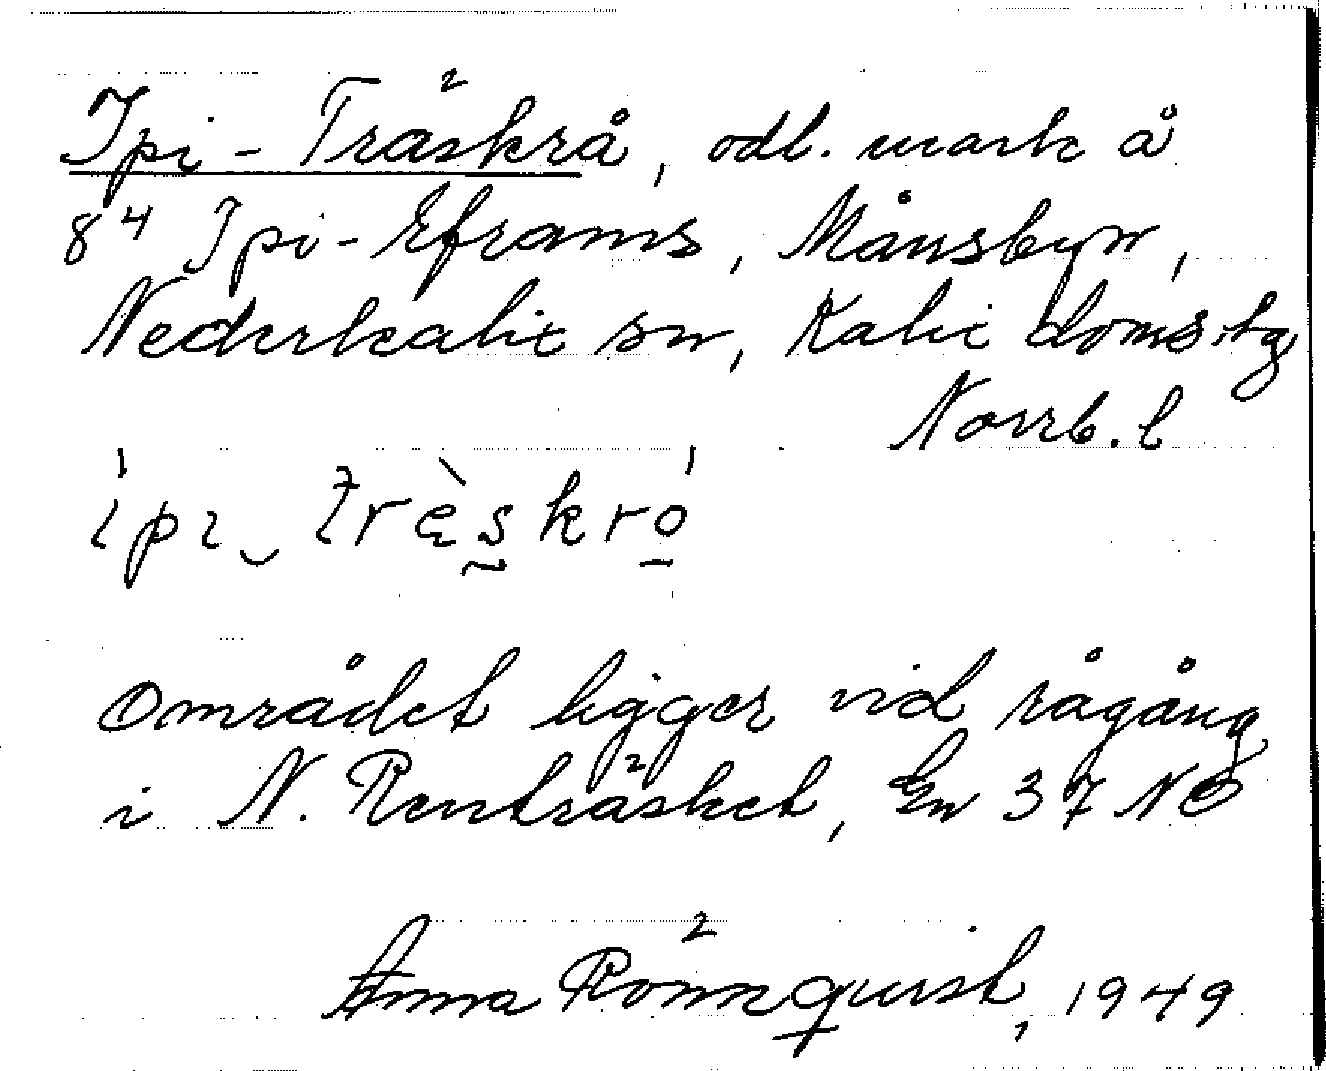 Ipi-Träskrå, odl. mark å
8⁴ Ipi-Eframs, Månsbyn,
Nederkalix sn, Kalix doms.tg
Norrb. l
ipiträskro
Området ligger vid rågång
i N. Renträsket, En 37 NO
Anna Rönnquist, 1949